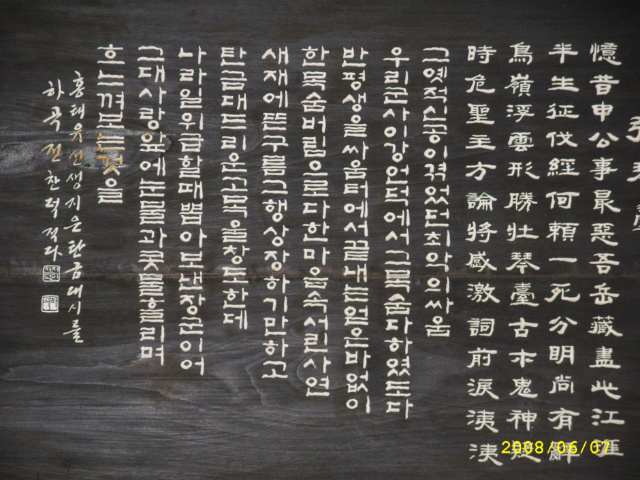 憶昔申公事最惡吾岳藏盡此江涯
半生征伐經何賴一死分明尚有辭
鳥嶺浮雲形勝壯琴臺古木鬼神疑
時危聖主方論將感激詞前淚洟洟
그옛적신공이겪었던최악의싸움
우리군사이강언덕에서그목숨다하였도다
반평생을싸움터에서끝내는얻은바없이
한목숨버림으로다한마음속서린사연
새재에뜬구름그행상장하기만하고
탄금대드리운고목을창도한데
나라일위급할때뽑아보낸장군이어
그대사랑앞에눈물과콧물흘리며
흐느껴보는것을
홍태유선생지은탄금대시를
하곡전찬덕적다
2008/06/07